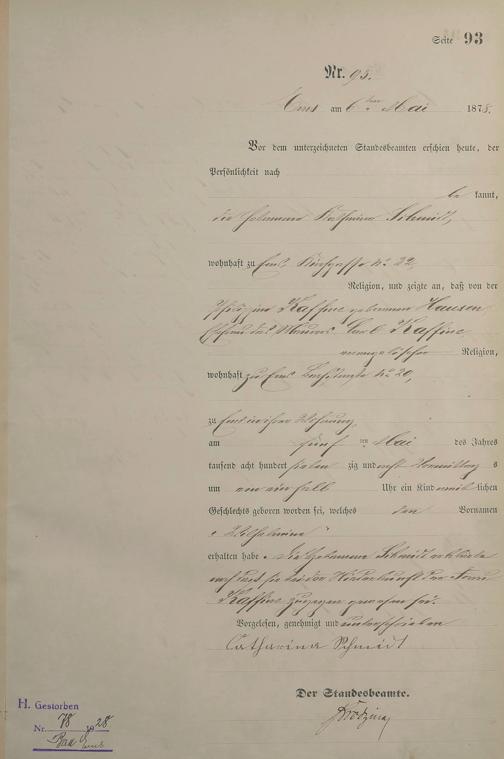 Seite 93
Nr. 93.
Ems am 6ten Mai 1878.
Vor dem unterzeichneten Standesbeamten erschien heute, der
Persönlichkeit nach
be kannt,
die Hebamme Katharina Schmidt,
wohnhaft zu Ems, Kirchgasse No 22,
Religion, und zeigte an, daß von der
Kaffine geborenen Hausen
Ehefrau des Maurers Carl Kaffine
evangelischer Religion,
wohnhaft zu Ems No 20,
zu Ems in ihrer Wohnung
am fünf ten Mai des Jahres
tausend acht hundert sieben zig und acht Vormittag s
um ein halb Uhr ein Kind weib lichen
Geschlechts geboren worden sei, welches den Vornamen
„Wilhelmine"
erhalten habe. Die Hebamme Schmidt erklärte
daß sie bei der Niederkunft der Frau
Kaffine zugegen gewesen sei.
Vorgelesen, genehmigt und unterschrieben
Catharina Schmidt
Der Standesbeamte.
H. Gestorben
Nr. 78 1928
Bad Ems